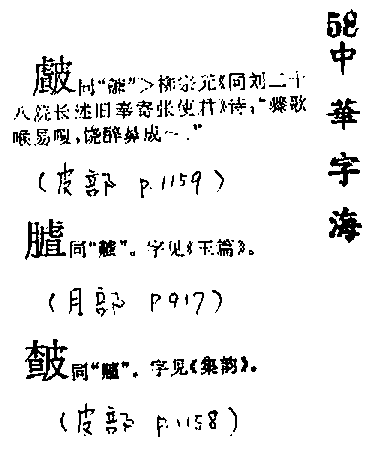 58
中華字海
皻 同“齄”>柳宗元《同刘二十
八院长述旧奉寄张使君》诗:“蹙歌
喉易嗄,饶醉鼻成～.”
(皮部 p.1159)
䐒 同“皻”。字见《玉篇》。
(月部 P917)
皶 同“皻”.字见《集韵》。
(皮部 p.1158)